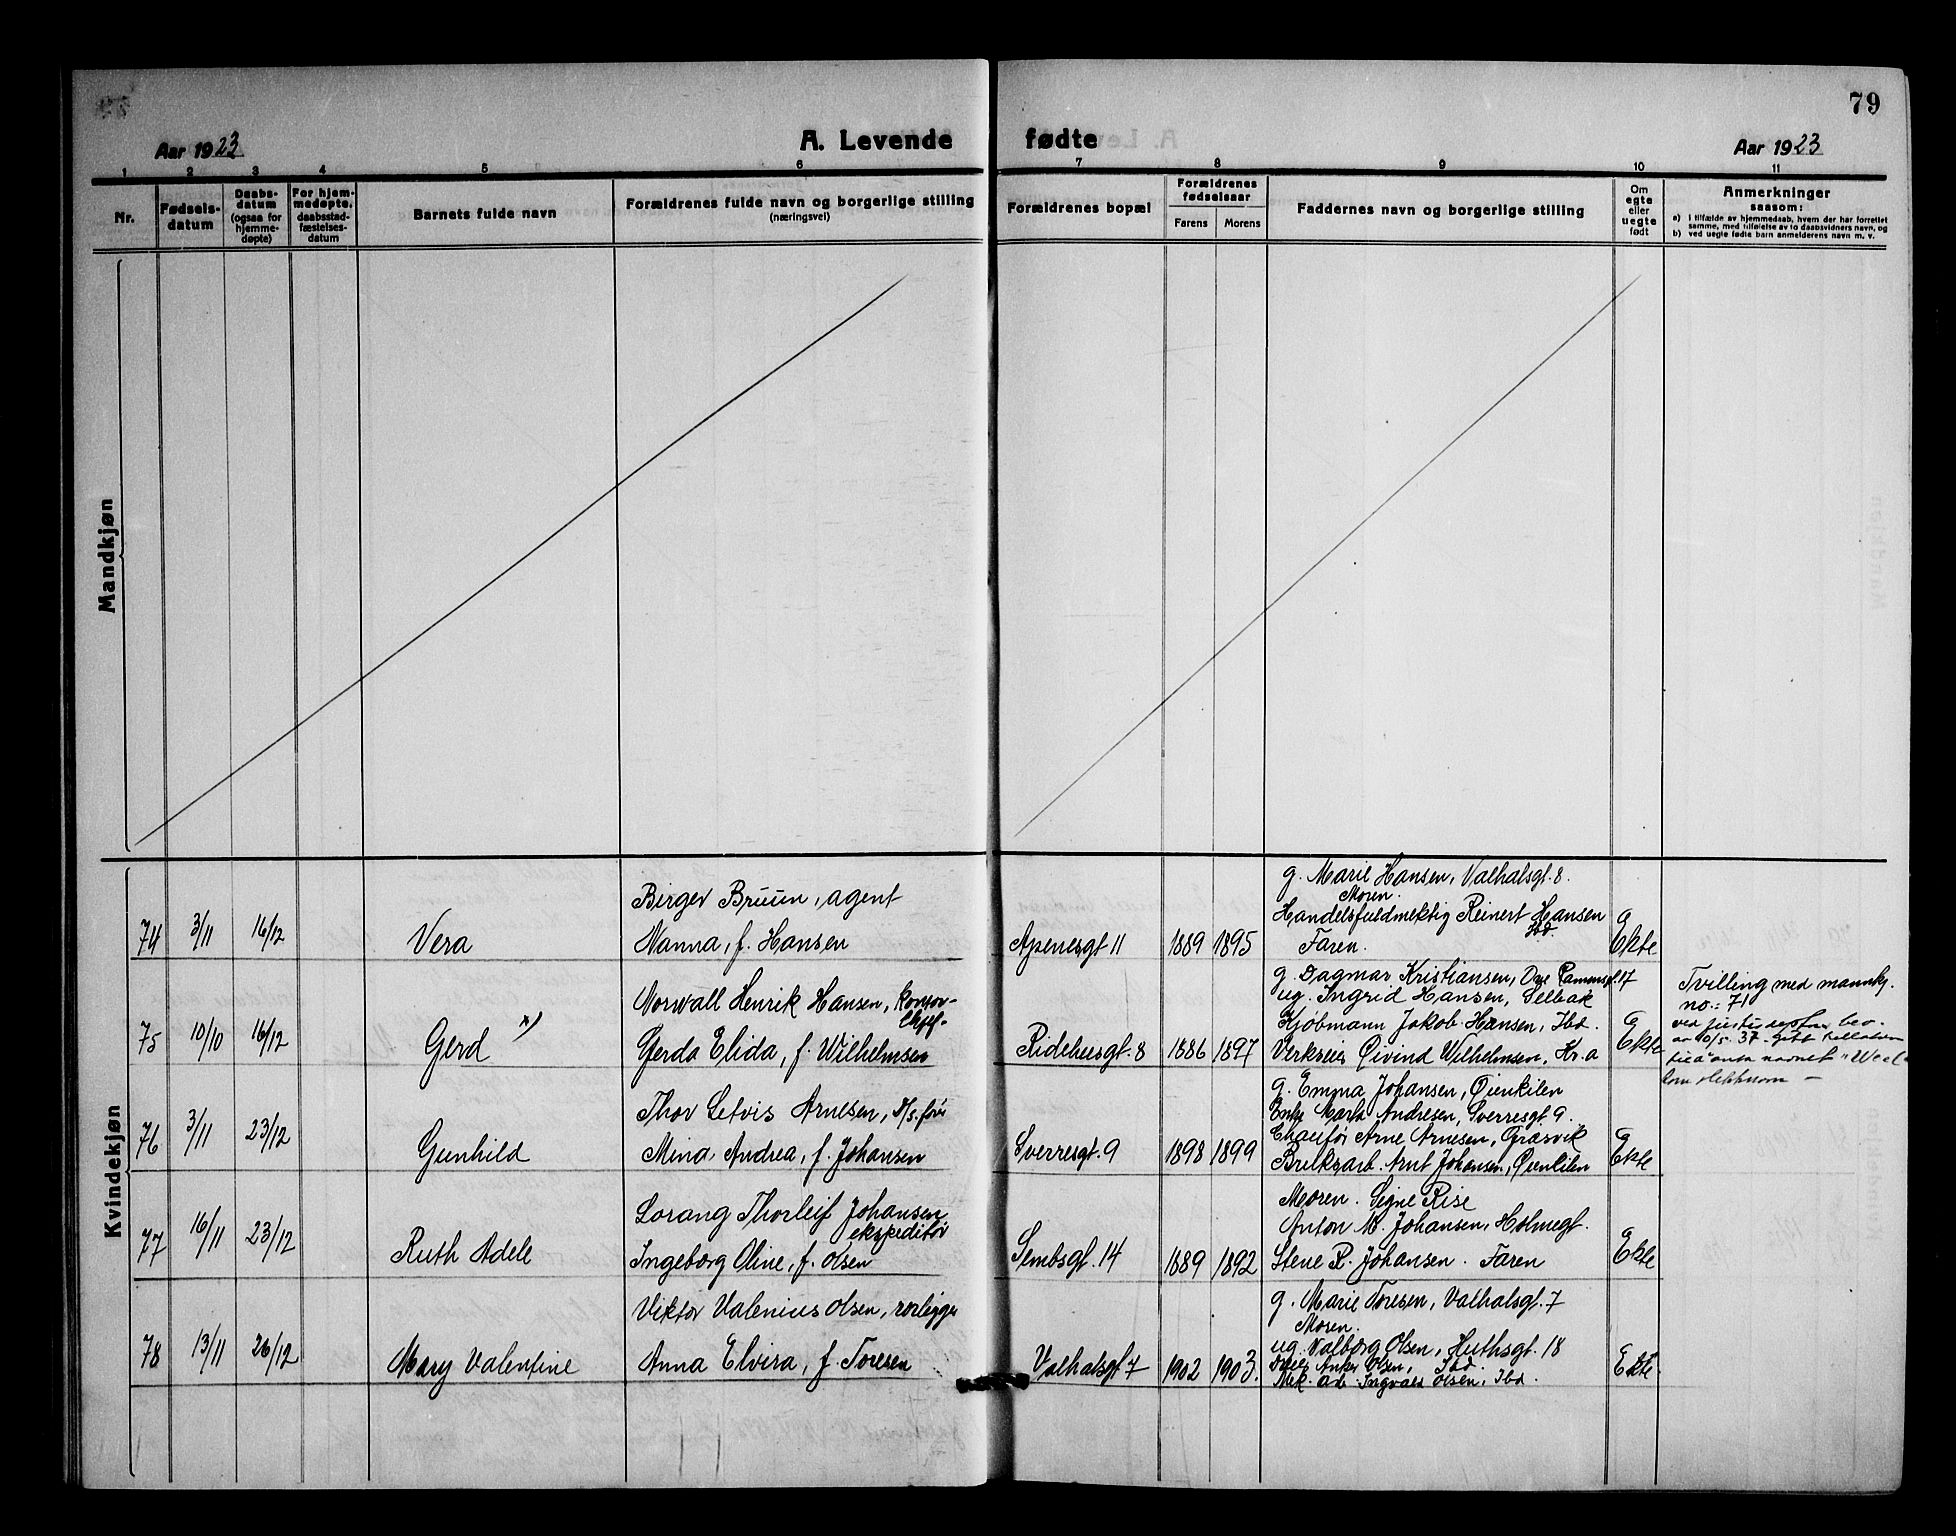 79
Aar 1923
A. Levende
fødte
Aar 1923
1 2 3 4 5 6 7 8 9 10 11
Nr.
Fødsels-
datum
Daabs-
datum
(ogsaa for
hjemme-
døpte)
For hjem-
medøpte,
daabsstad-
fæstelses-
datum
Barnets fulde navn
Forældrenes fulde navn og borgerlige stilling
(næringsvei)
Forældrenes bopæl
Forældrenes
fødselsaar
Farens Morens
Faddernes navn og borgerlige stilling
Om
egte
eller
uegte
født
Anmerkninger
saasom:
a) i tilfælde av hjemmedaab, hvem der har forrettet
samme, med tilføielse av to daabsvidners navn, og
b) ved uegte fødte barn anmelderens navn m. v.
Mandkjøn
Kvindekjøn
74 3/11 16/12 Vera
Birger Bruun, agent
Nanna, f. Hansen
Apenesgt 11 1889 1895
g. Marie Hansen, Valhalsgt. 8.
Moren.
Handelsfuldmektig Reinert Hansen
Ibd.
Faren.
Ekte
75 10/10 16/12 Gerd x)
Norvall Henrik Hansen, kontor-
chef-
Gerda Elida, f. Wilhelmsen
Ridehusgt. 8 1886 1897
g. Dagmar Kristiansen, 17
ug. Ingrid Hansen, Selbak
Kjøbmann Jakob Hansen, Ibd.
Verkseier Øivind Wilhelmsen, Kr.a
Ekte
Tvilling med mannkj.
no.: 71
ved
10/5. 37. gitt
navnet
76 3/11 23/12 Gunhild
Thor Letvis Arnesen,
Mina Andrea, f. Johansen
Sverresgt. 9 1898 1899
g. Emma Johansen, Øienkilen
Enke Marta Andresen, Sverresgt 9.
Chaufør Arne Arnesen, Græsvik
Bruksarb. Arnt Johansen, Øienkilen
Ekte
77 16/11 23/12 Ruth Adele
Lorang Thorleif Johansen
ekspeditør
Ingeborg Oline, f. Olsen
Sembsgt. 14 1889 1892
Moren. Signe Rise
Anton M. Johansen, Holmegt.
Stene R. Johansen. Faren
Ekte
78 13/11 26/12 Mary Valentine
Viktor Valenius Olsen, rørlegger
Anna Elvira, f. Toresen
Valhalsgt 7 1902 1903.
g. Marie Toresen, Valhalsgt. 7
Moren.
ug. Valborg Olsen, Huthsgt. 18
Anker Olsen, Ibd.
Mek. arb. Ingvald Olsen, Ibd.
Ekte.